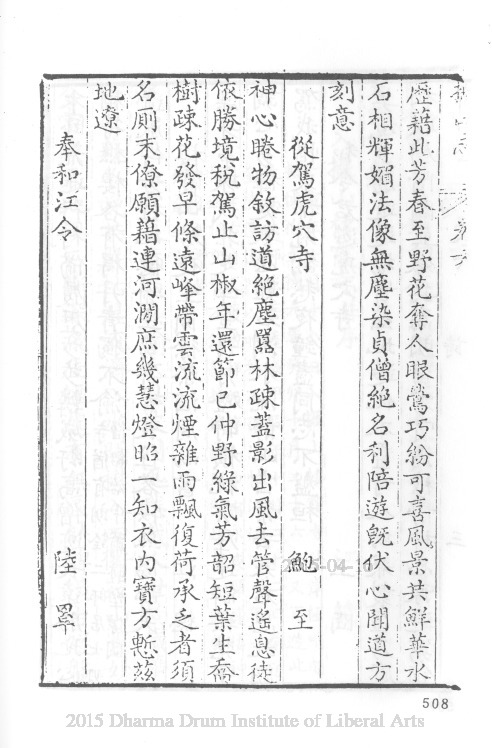 歷藉此芳春至野花奪人眼鶯巧紛可喜風景共鮮華水
石相輝媚法像無塵染貞僧絕名利陪遊既伏心聞道方
刻意
從駕虎穴寺 鮑至
神心睠物敘訪道絕塵囂林疎蓋影出風去管聲遙息徒
依勝境稅駕止山椒年還節已仲野綠氣芳韶短葉生喬
樹疎花發早條遠峰帶雲流流煙雜雨飄復荷承乏者須
名厠末僚願藉連河澗庶幾慧燈昭一知衣內寶方慙茲
地遼
奉和江令 陸罩
508
2015 Dharma Drum Institute of Liberal Arts